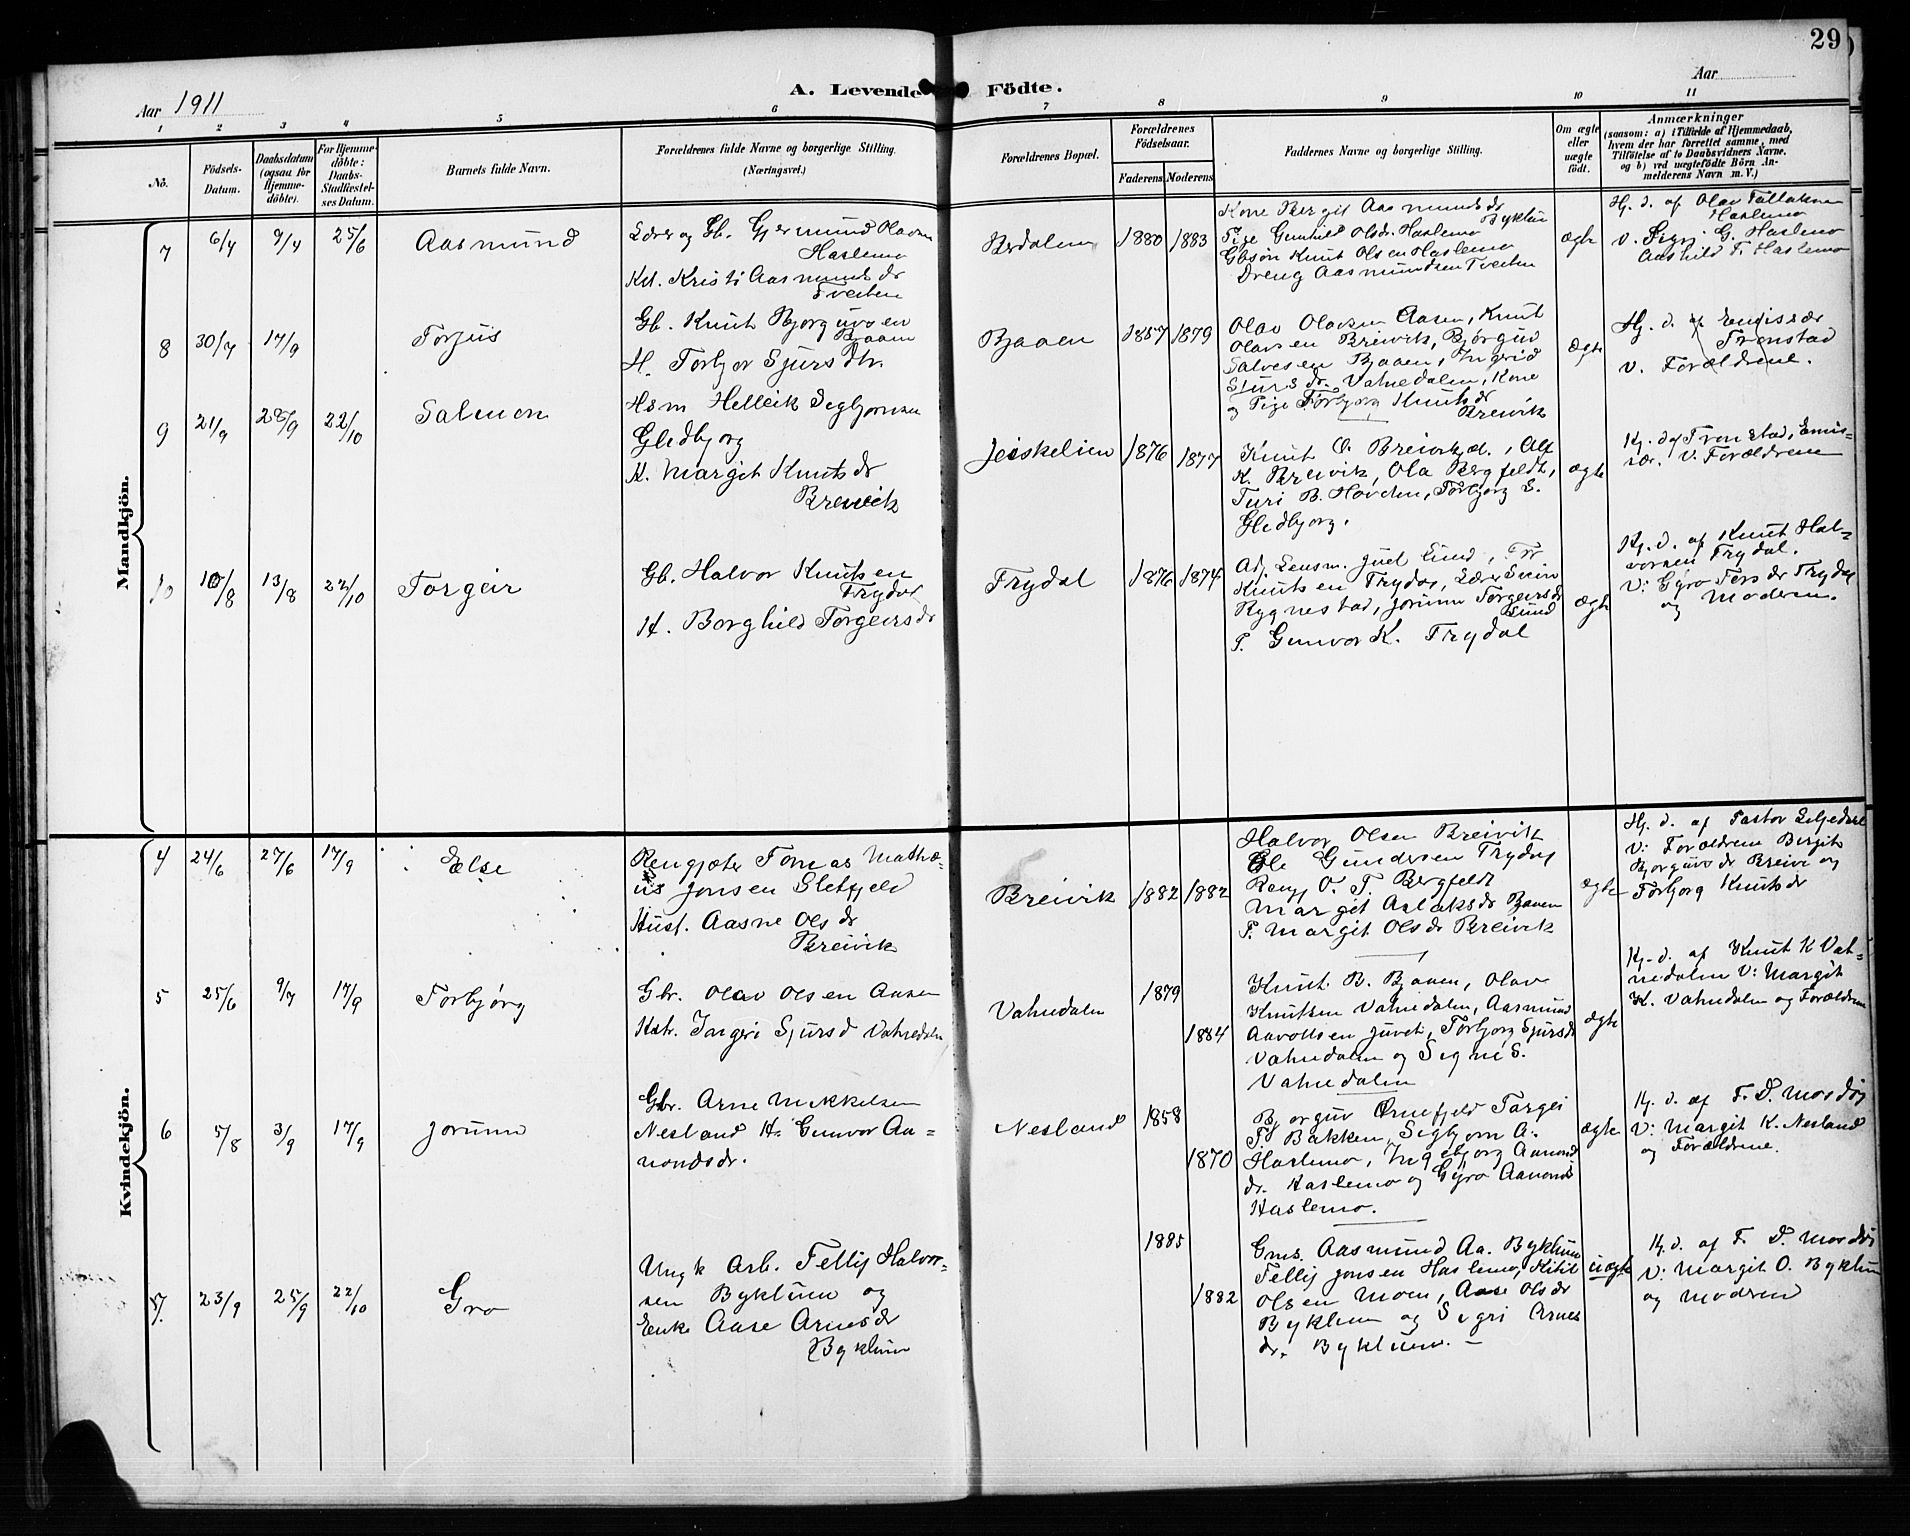 29
Aar 1911
A. Levende Födte.
Aar
1 2 3 4 5 6 7 8 9 10 11
No.
Födsels-Datum.
Daabsdatum (ogsaa for Hjemmedöbte).
For Hjemmedöbte: Daabs-Stadfæstelses Datum.
Barnets fulde Navn.
Forældrenes fulde Navne og borgerlige Stilling.
(Næringsvei.)
Forældrenes Bopæl.
Forældrenes Födselsaar.
Faderens Moderens
Faddernes Navne og borgerlige Stilling.
Om ægte eller uægte födt.
Anmærkninger
(saasom: a) i Tilfælde af Hjemmedaab,
hvem der har forrettet samme, med
Tilföielse af to Daabsvidners Navne.
og b) ved uægtefödte Börn Anmelderens Navn m. V.)
Mandkjön.
7 6/4 9/4 25/6 Aasmund
Lærer og Gb. Gjermund Olavsen
Haslemo
Kst. Kristi Aasmundsdr
Tveiten
Berdalen 1880 1883
Kone Bergit Aasmundsdr
Byklum
Pige Gunhild Olsdr. Haslemo
Gbsön Knut Olsen Haslemo
Dreng Aasmundsen Tveiten
ægte
Hj. d. af Olav Tallaksen
Haslemo
v. Sigri G. Haslemo
Aashild T. Haslemo
8 30/7 17/9 Torjus
Gb. Knut Bjorguvsen
Bjaaen
H. Torbjor Sjursdtr.
Bjaaen 1857 1879
Olav Olavsen Aasen, Knut
Olavsen Breivik, Bjørguv
Salvesen Bjaaen, Ingerid
Sjursdr. Vatnedalen, Kone
og Pige Torbjorg Knutsdr
Breivik
ægte
Hj. d. af Emissær
Tronstad
v. Forældrene.
9 21/9 28/9 22/10 Salmon
Hsm Helleik Sigbjornsen
Glidbjorg
K. Margit Knutsdr
Breivik
Jeiskelien 1876 1877
Knut O. Breivik, Alf
K. Breivik, Ola Bergfeldt,
Turi B. Hovden, Torbjorg S.
Glidbjorg.
ægte
Hj. d. af Tronstad, Emissær. V. Forældrene
10 10/8 13/8 22/10 Torgeir
Gb. Halvor Knutsen
Trydal
H. Borghild Torgeirsdr
Trydal 1876 1874
Adj. Lensm. Juel Lund, Tr
Knutsen Trydal, Lærer Svein
Rygnestad, Jorunn Torgeirsdr
Lund
P. Gunvor K. Trydal
ægte
Hj. d. af Knut Halvorsen Trydal.
V: Gyro Torsdr Trydal
og Moderen.
Kvindekjön.
4 24/6 27/6 17/9 Else
Rengjæter Tomas Mathæus Jonsen Sletfjeld
Hust. Aasne Olsdr
Breivik
Breivik 1882 1882
Halvor Olsen Breivik
Ole Gundersen Trydal
Rengj O. T. Bergfeldt
Margit Aslaksdr Bjaaen
P. Margit Olsdr Breivik
ægte
Hj. d. af Pastor Liljedahl
V: Forældrene Bergit
Bjorguvsdr Breive og
Torbjorg Knutsdr
5 25/6 9/7 17/9 Torbjørg
Gbr. Olav Olsen Aasen
Kst. Ingeri Sjursd Vatnedalen
Vatnedalen 1879
1884
Knut B. Bjaaen, Olav
Knutsen Vatnedalen, Aasmund
Aavoltsen Juvet, Torbjorg Sjursdr
Vatnedalen og Signe S.
Vatnedalen
ægte
Hj. d. af Knut K Vatnedalen V: Margit
K. Vatnedalen og Forældrene
6 5/8 3/9 17/9 Jorunn
Gbr. Arne Mikkelsen
Nesland H. Gunvor Aanondsdr.
Nesland 1858
1870
Bjorguv Ørnefjeld Targei
T. Bakken, Sigbjorn A.
Haslemo, Ingebjorg Aanonds
dr. Haslemo og Gyro Aanonds
Haslemo.
ægte
Hj. d. af F. D. Mosdøl
V: Margit K. Nesland
og Forældrene.
7. 23/9 25/9 22/10 Gro
Ungk Arb. Tellif Halvorsen Byklum og
Enke Aase Arnesdr
Byklum
1885
1882
Gms. Aasmund Aa. Byklum
Tellif Jonsen Haslemo, Kitil
Olsen Moen, Aase Olsdr
Byklum og Sigri Arnes
dr. Byklum. –
uægte
Hj. d. af F. D. Mosdøl
V: Margit O. Byklum
og Moderen